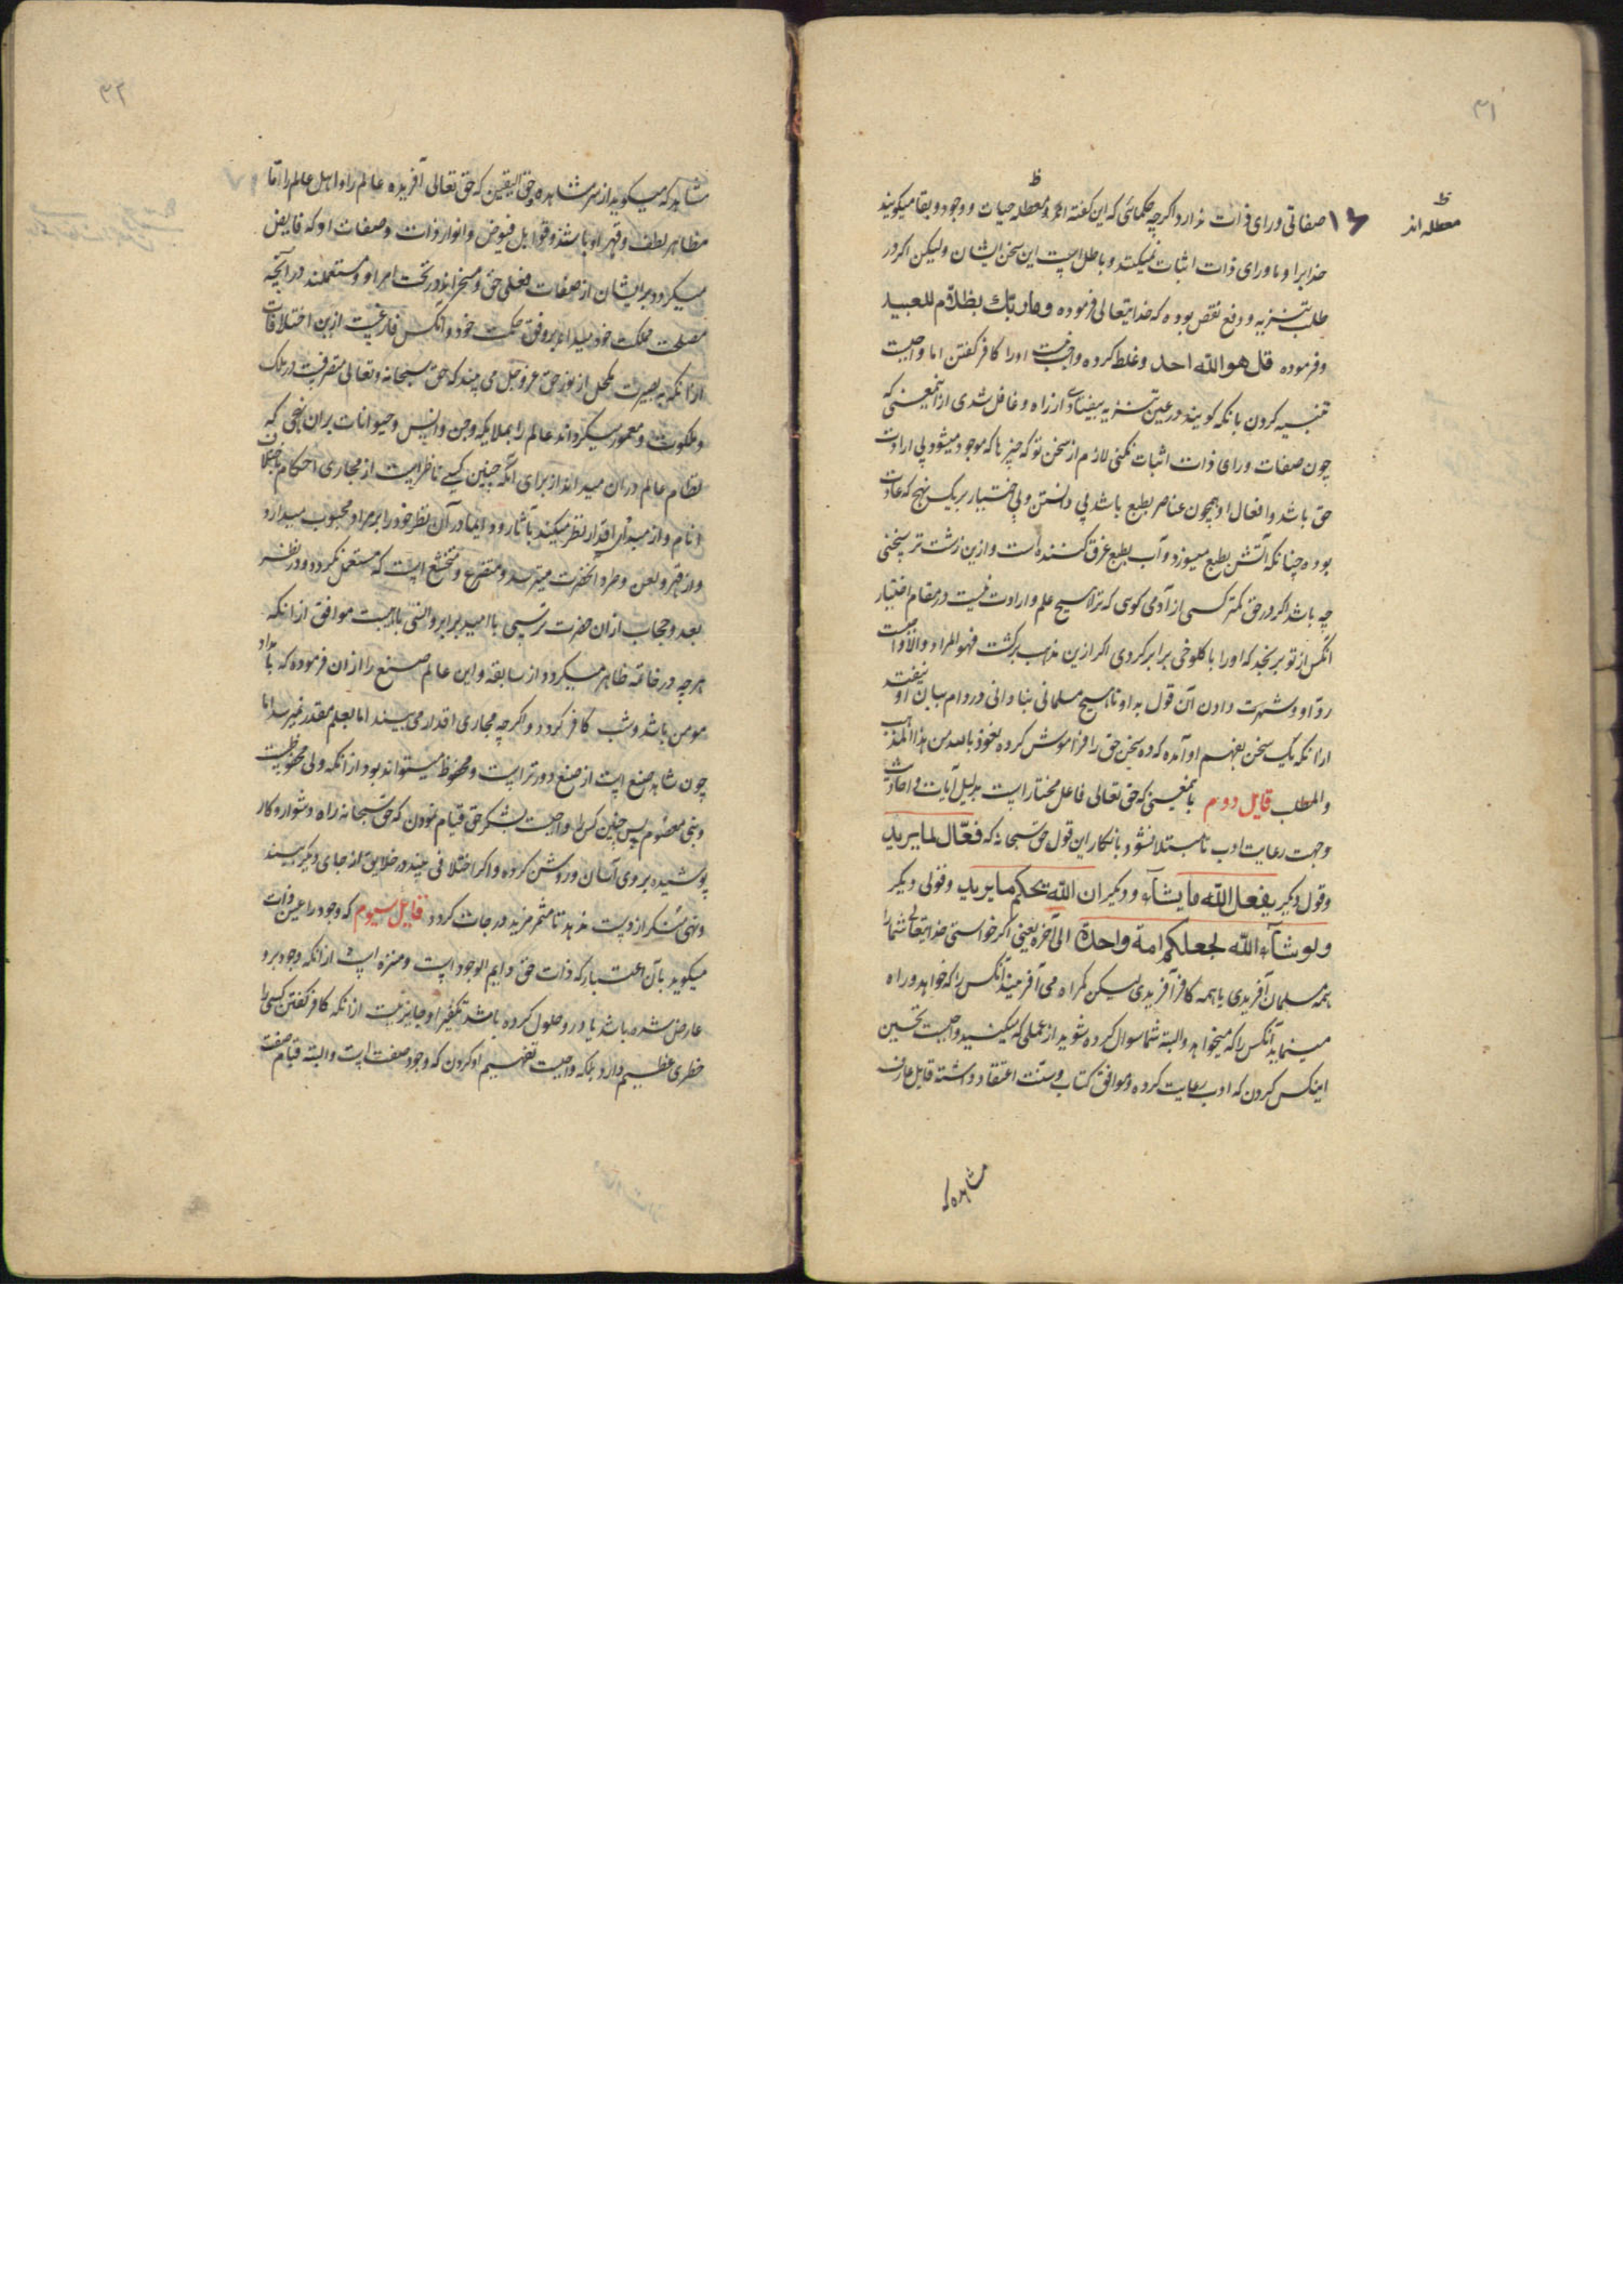 ۳۱
معطله اند
صفاتی ورای ذات ندارد و اگرچه حکمائی که این گفته اند و معطله حیات و وجود و بقا میگویند
خدایرا و ماورای ذات اثبات نمیکنند و باطل است این سخن ایشان ولیکن اگر در
طلب تنزیه و دفع نقص بوده که خدایتعالی فرموده وما ربّك بظلاّم للعبید
و فرموده قل هو الله احد و غلط کرده واجب نیست اورا کافر گفتن اما واجبست
تنبیه کردن بانکه گویند در عین تنزیه بیفتادی از راه و غافل شدی از اینمعنی که
چون صفات ورای ذات اثبات نکنی لازم از سخن تو که چیزها که موجود میشود بی ارادت
حق باشد و افعال او همچون عناصر بطبع باشد بی دانستن و بی اختیار بر یک نهج که عادت
بوده چنانکه آتش بطبع میسوزد و آب بطبع غرق کننده است و ازین زشت تر سخنی
چه باشد اگر در حق کمتر کسی از آدمی گوئی که ترا هیچ علم و ارادت نیست در مقام اختیار
انکس از تو برنجد که اورا با کلوخی برابر کردی اگر ازین مذهب برگشت فهو المراد والا واجبست
ردّ او و شهرت دادن آن قول به او تا هیچ مسلمانی بنادانی در دام بیان او نیفتد
ازانکه یک سخن بفهم او آمده که ده سخن حق را فراموش کرده نعوذ بالله من هذا المذهب
والمطلب قایل دوم باینمعنی که حق تعالی فاعل مختار است بدلیل آیات و احادیث
وجهت رعایت ادب تا مبتلا نشود بانکار این قول حق سبحانه که فعّال لما یرید
وقول دیگر یفعل الله ما یشآء و دیگر ان الله یحکم ما یرید وقولی دیگر
ولو شآء الله لجعلکم امة واحدة الی آخره یعنی اگر خواستی خدایتعالی شمارا
همه مسلمان آفریدی یا همه کافر آفریدی لیکن گمراه می آفریند آنکس را که خواهد و راه
مینماید آنکس را که میخواهد و البته شما سوال کرده شوید از عملی که میکنید واجبست تحسین
اینکس کردن که ادب رعایت کرده و موافق کتاب و سنت اعتقاد داشته قایل عارف
مشاهد که
۳۲
مشاهد که میگوید از سر مشاهده و حق الیقین که حق تعالی آفریده عالم را و اهل عالم را تا
مظاهر لطف و قهر او باشند و قوابل فیوض و انوار ذات و صفات او که فایض
میگردد بر ایشان از صفات فعلی حق و مسخراند در تحت امر او و مستعملند در آنچه
مصلحت ملک خود میداند بر وفق حکمت خود و آنکس فارغست ازین اختلافات
ازانکه به بصیرت مکحل از نور حق عز و جل می بیند که حق سبحانه و تعالی متصرفست در ملک
و ملکوت و معمور میگرداند عالم را بملایکه و جن و انس و حیوانات بران نهجی که
نظام عالم دران میداند از برای آنکه چنین کسی ناظر است از مجاری احکام باختلاف
انام و از مبدأی اقدار نظر میکند بآثار و دایما در آن نظر خود را بر مراد محبوب میدارد
و از قهر و لعن و طرد آنحضرت میترسد و متضرع و متخشع است که مستعمل نگردد و در نظر
بعد و حجاب ازان حضرت ترسی با امید برابر و انسی باهیبت موافق ازانکه
هرچه در خاتمه ظاهر میگردد از سابقه و این عالم صنع را ازان فرموده که بامداد
مومن باشد و شب کافر گردد و اگرچه مجاری اقدار می بیند اما بعلم مقدر نمیرسد اما
چون شاهد صنع است از صنع دورتر است و محظوظ میتواند بود ازانکه ولی محفوظست
و نبی معصوم پس چنین کس را واجبست بشکر حق قیام نمودن که حق سبحانه راه دشوار و کار
پوشیده بروی آسان و روشن کرده و اگر اختلافی بیند در خلایق از جای دیگر بیند
و نهی منکر از دست ندهد تا مثمر مزید درجات گردد قایل سیوم که وجود را عین ذات
میگوید بآن اعتبار که ذات حق دایم الوجود است و منزه است ازانکه وجود برو
عارض شده باشد یا در و حلول کرده باشد تکفیر او جایز نیست ازانکه کافر گفتن کسی را
خطری عظیم دارد بلکه واجبست تفهیم او کردن که وجود صفت است و البته قیام صفت